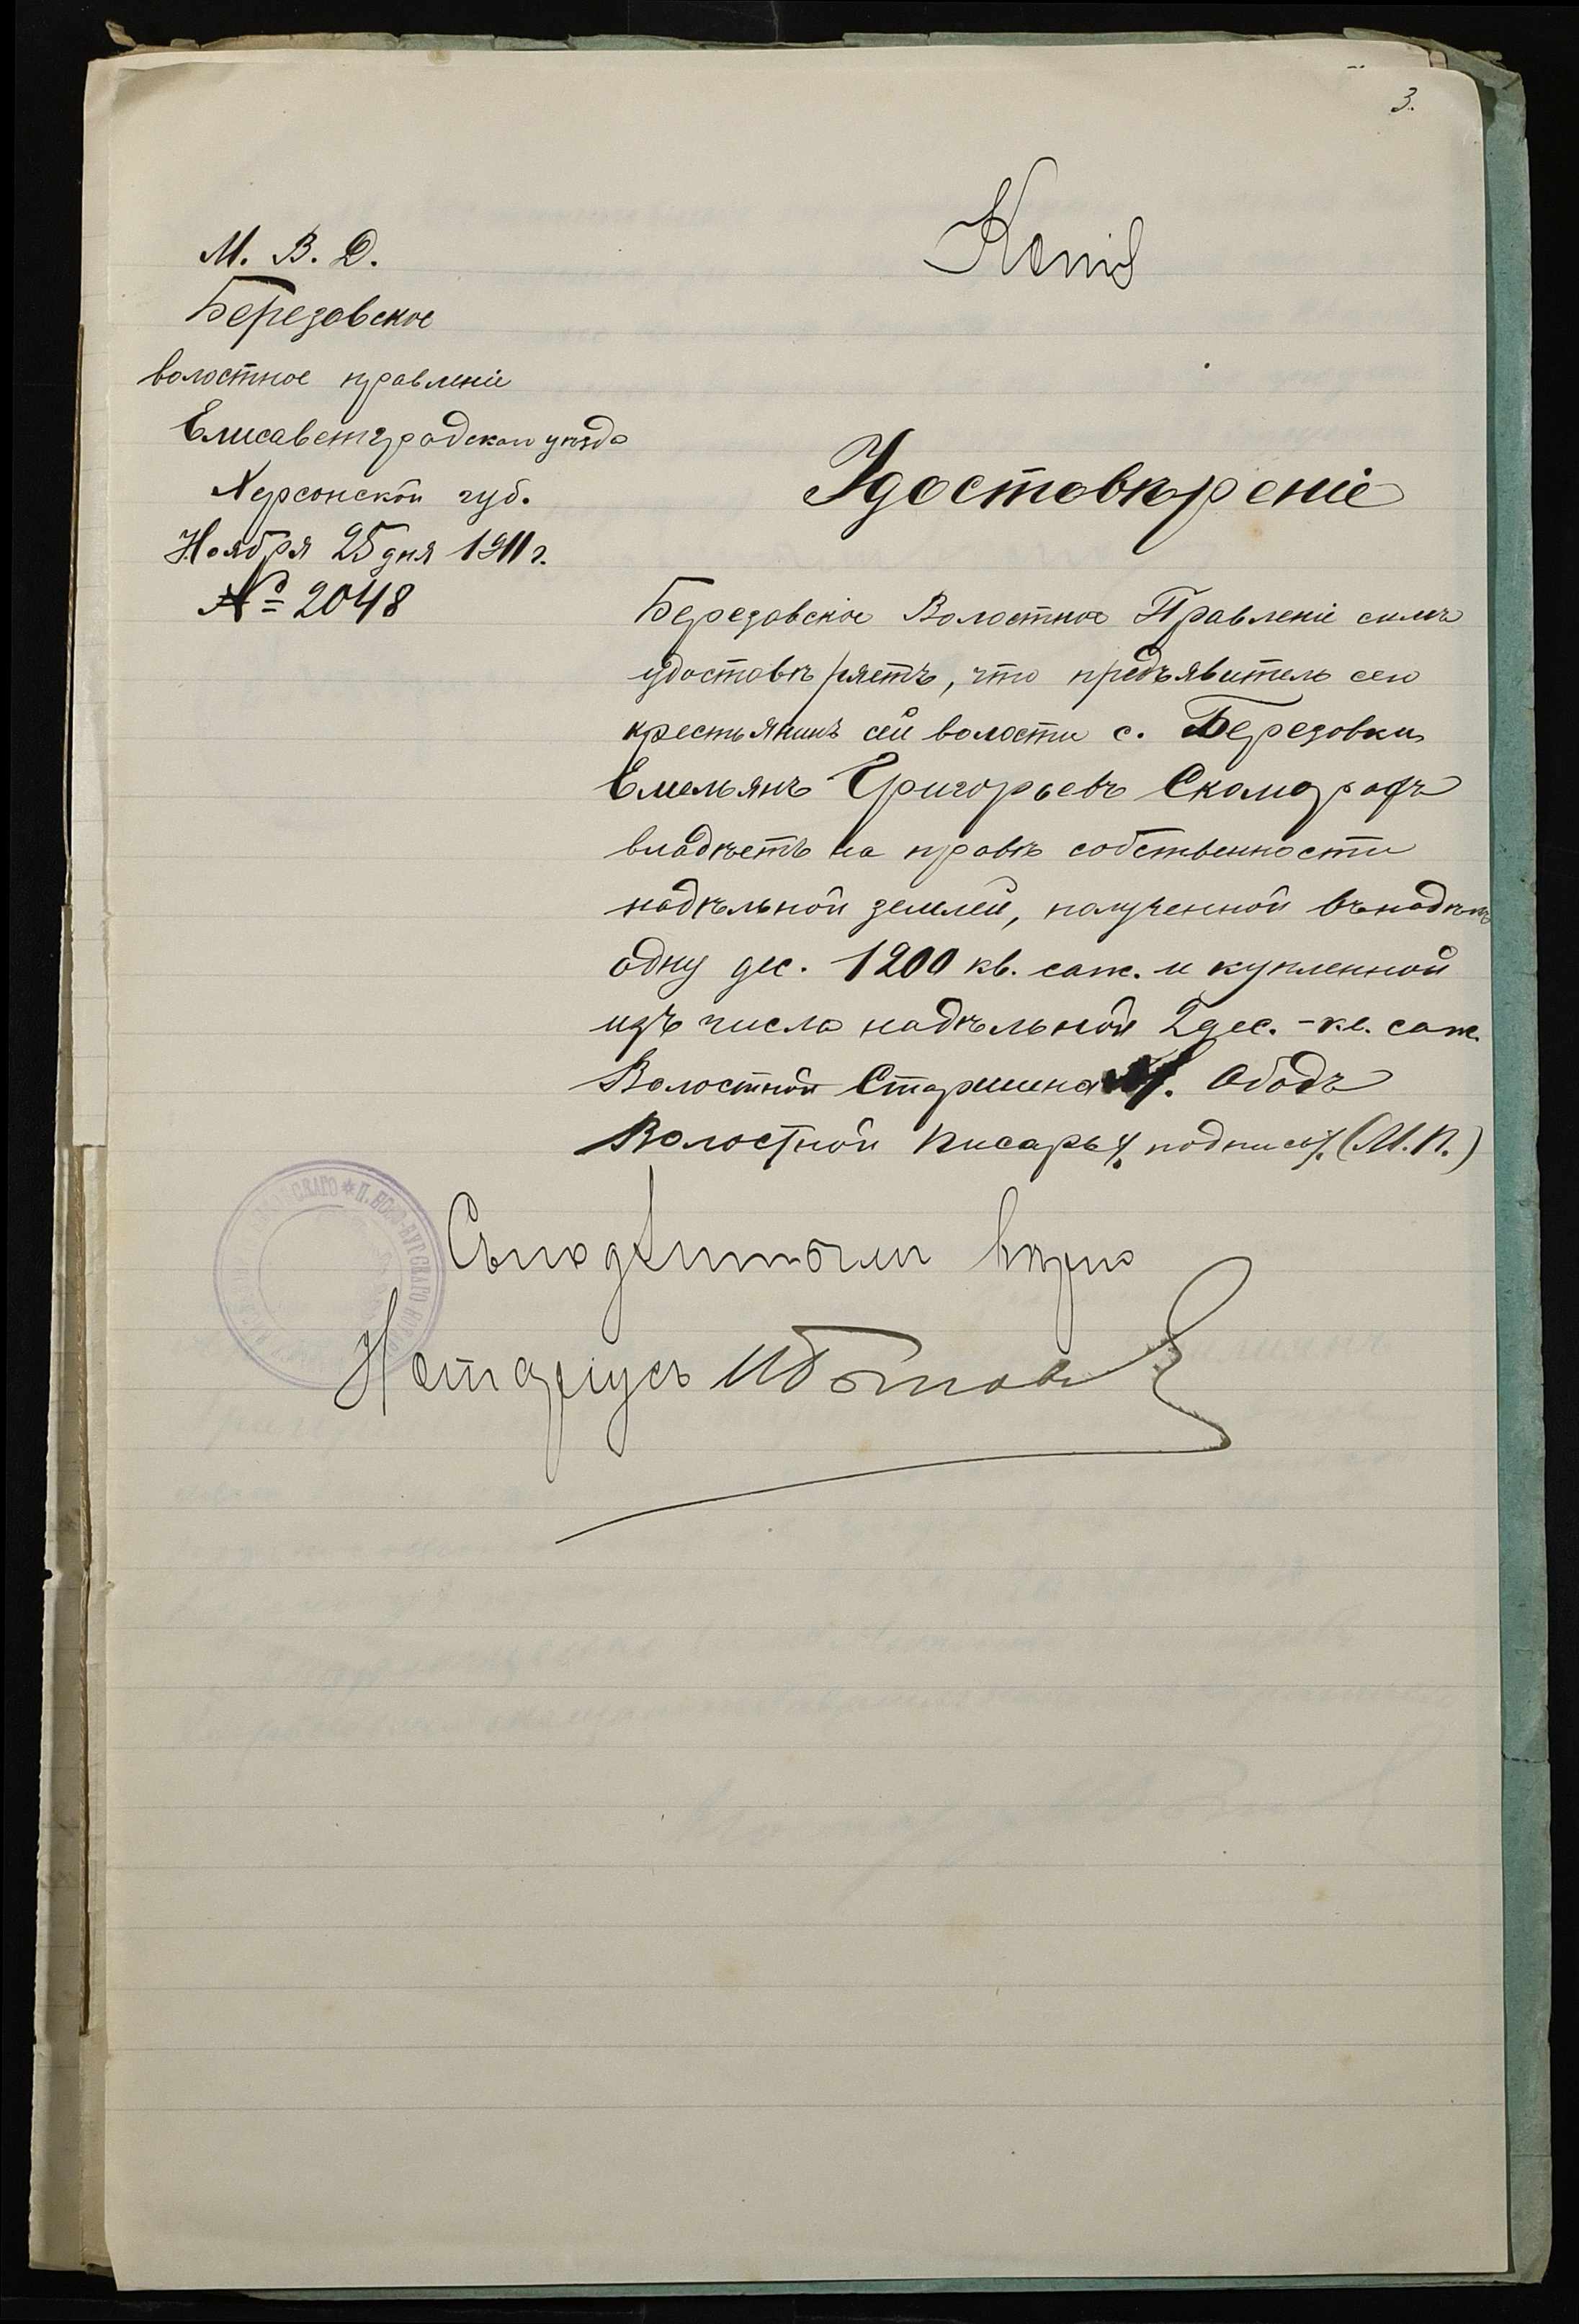 3.
Копія
М. В. Д.
Березовское
волостное правленіе
Елисаветградскаго уѣзда
Херсонской губ.
Ноября 25 дня 1911 г.
№ 2048
Удостовѣреніе
Березовское Волостное Правленіе симъ
удостовѣряетъ, что предъявитель сего
крестьянинъ сей волости с. Березовки
Емельянъ Григорьевъ Скоморохъ
владѣетъ на правѣ собственности
надѣльной землей, полученной въ надѣлъ
одну дес. 1200 кв. саж. и купленной
изъ числа надѣльной 2 дес. - кв. саж.
Волостной Старшина Ободъ
Волостной Писарь /. подпись /. (М.П.)
вѣрно
Нотаріусъ